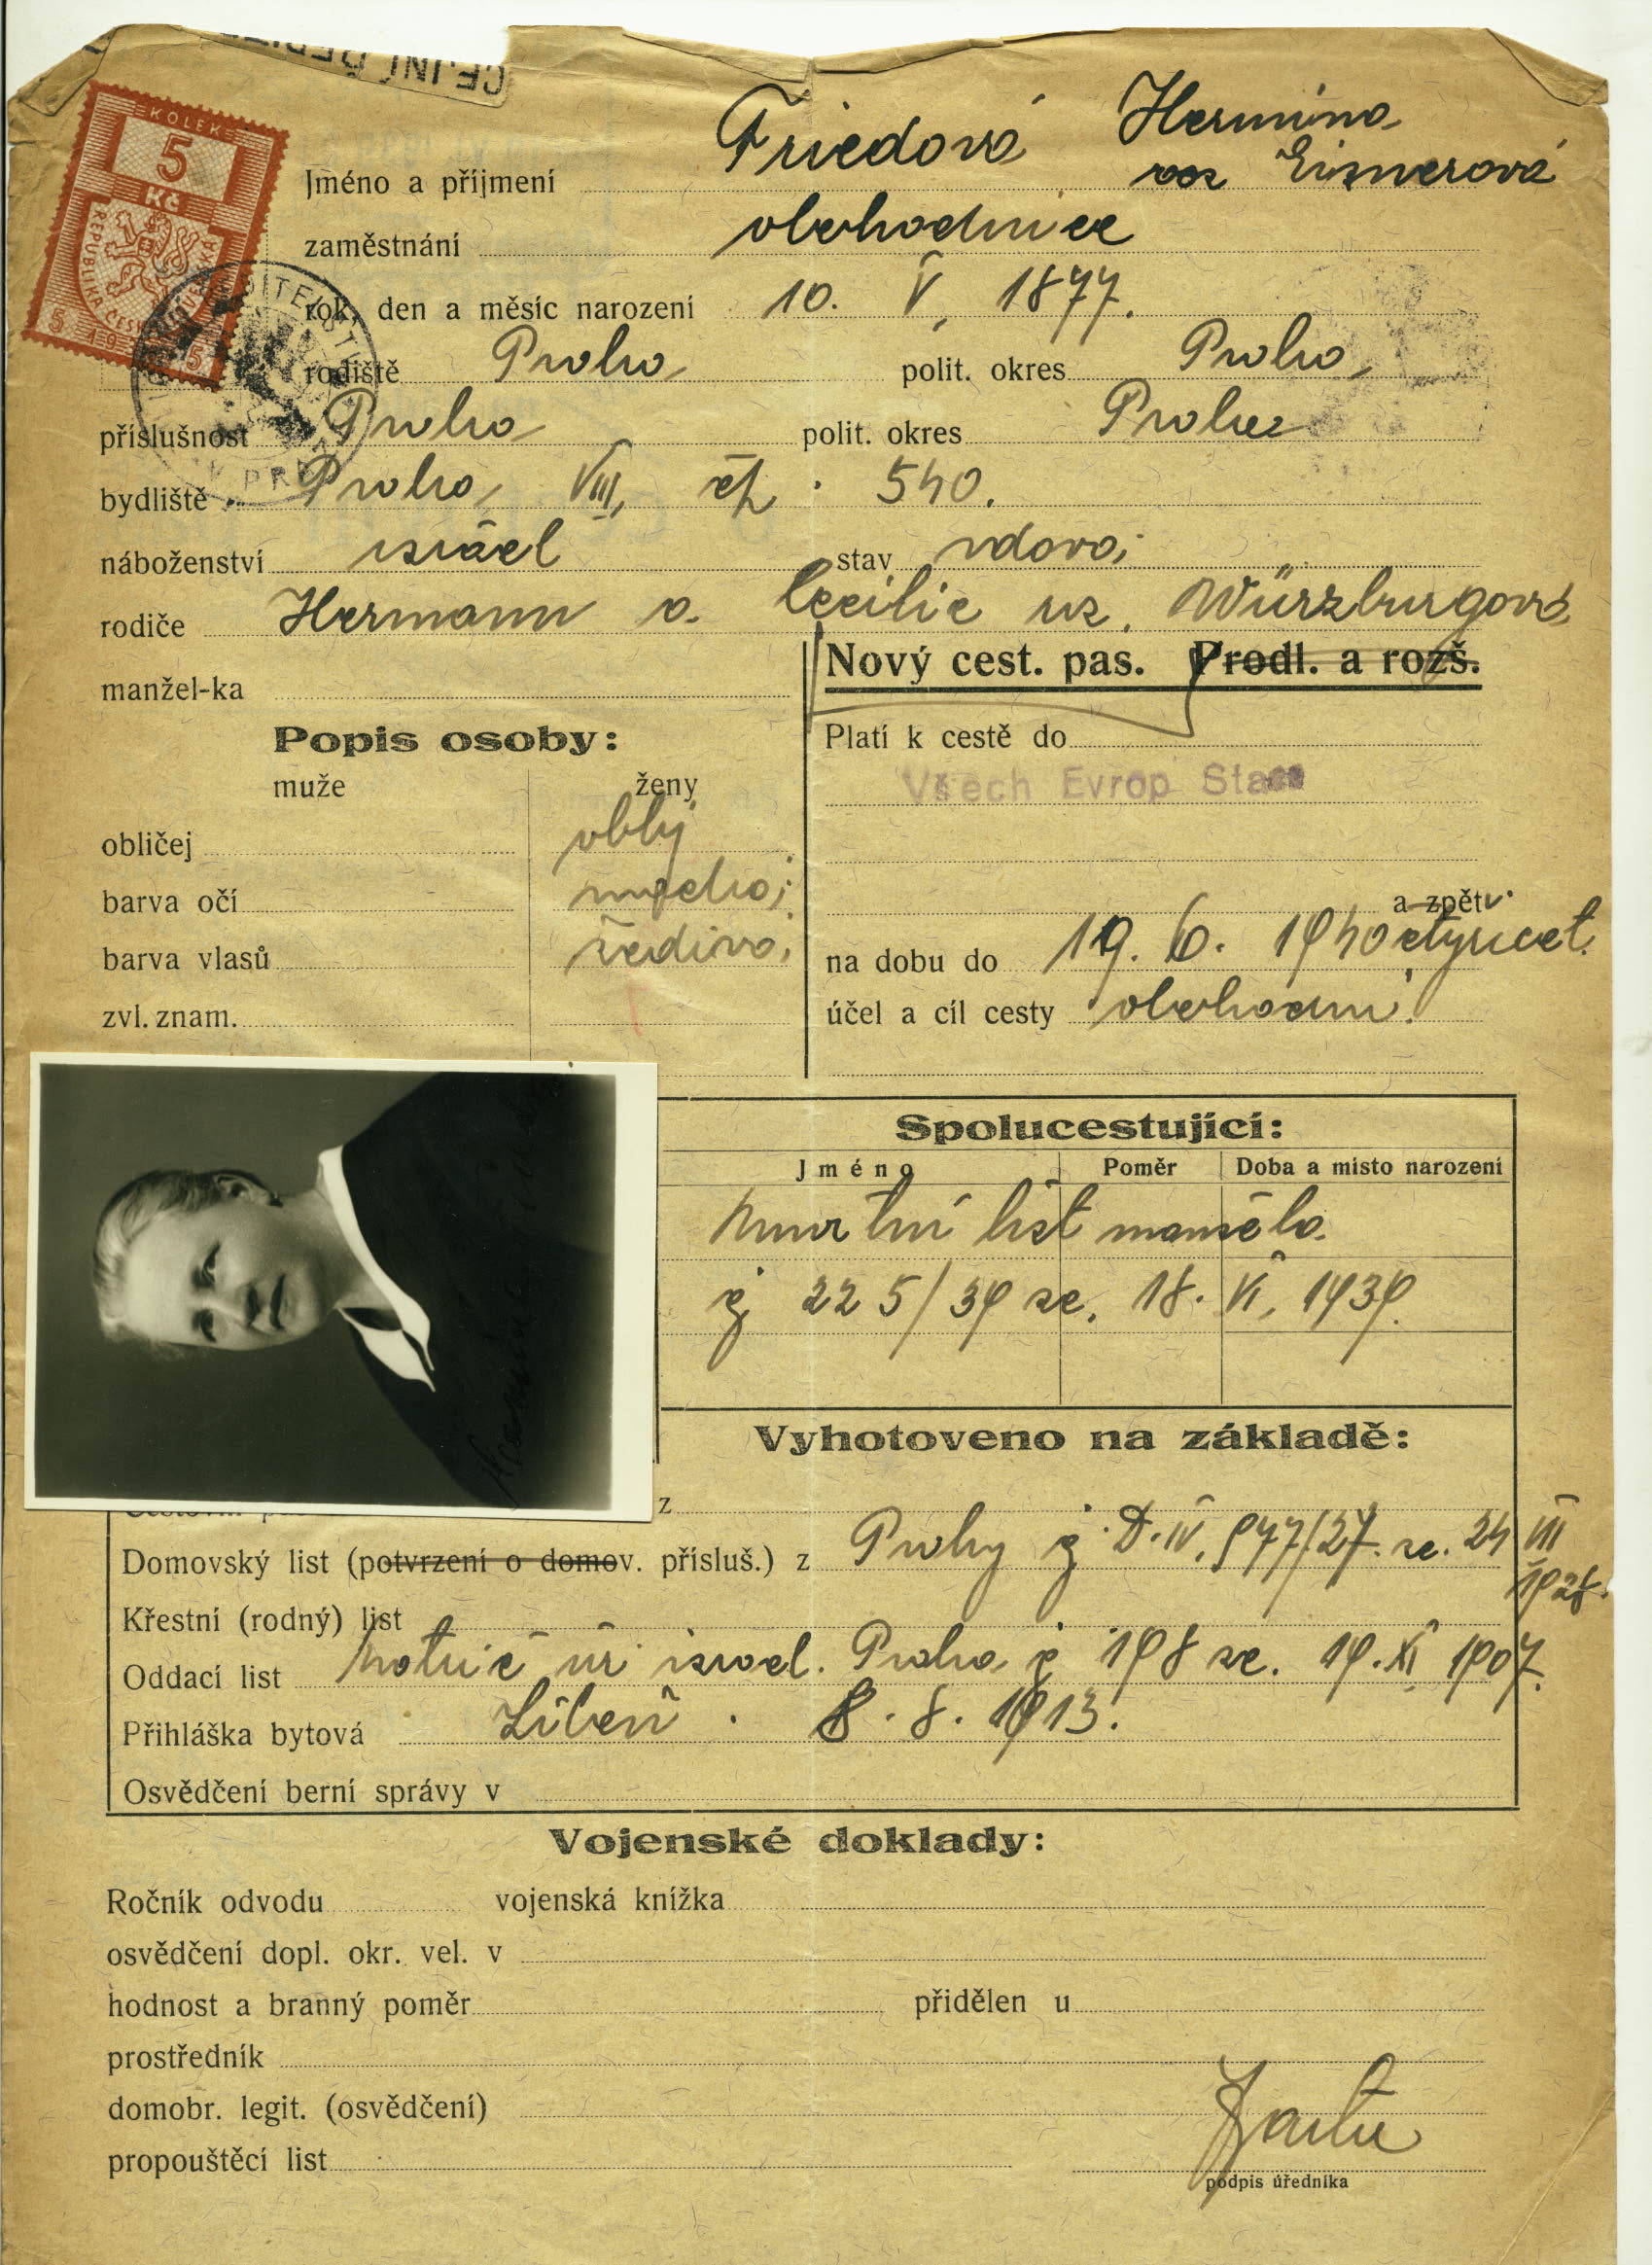 CEJNÍ ŘEDITE
KOLEK
5
Kč
REPUBLIKA ČESK
5 19 5
Jméno a příjmení Friedová Hermina
roz Eisnerová
zaměstnání obchodnice
rok, den a měsíc narození 10. V. 1877.
rodiště Praha polit. okres Praha
příslušnost Praha polit. okres Praha
bydliště Praha, VIII, čp. 540.
náboženství israel stav vdova
rodiče Hermann a. Cecilie roz. Würzburgová
manžel-ka
Nový cest. pas. Prodl. a rozš.
Popis osoby:
muže ženy
obličej oblý
barva očí modrá
barva vlasů šedivá
zvl. znam.
Platí k cestě do
Všech Evrop Stá
a zpět
na dobu do 19. 6. 1940 čtyřicet
účel a cíl cesty obchodní
Spolucestující:
Jméno Poměr Doba a místo narození
Úmrtní list manžela
čj 225/39 ze. 18. VI, 1939.
Vyhotoveno na základě:
z
Domovský list (potvrzení o domov. přísluš.) z Prahy čj. D. IV. 977/27. ze. 24 III
Křestní (rodný) list
Oddací list Matrič úř israel. Praha čj 198 ze. 19. XI 1907.
Přihláška bytová Libeň. 8. 8. 1913.
Osvědčení berní správy v
Vojenské doklady:
Ročník odvodu vojenská knížka
osvědčení dopl. okr. vel. v
hodnost a branný poměr přidělen u
prostředník
domobr. legit. (osvědčení)
propouštěcí list
podpis úředníka